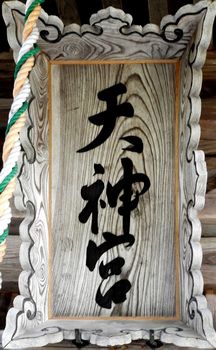 天神宮